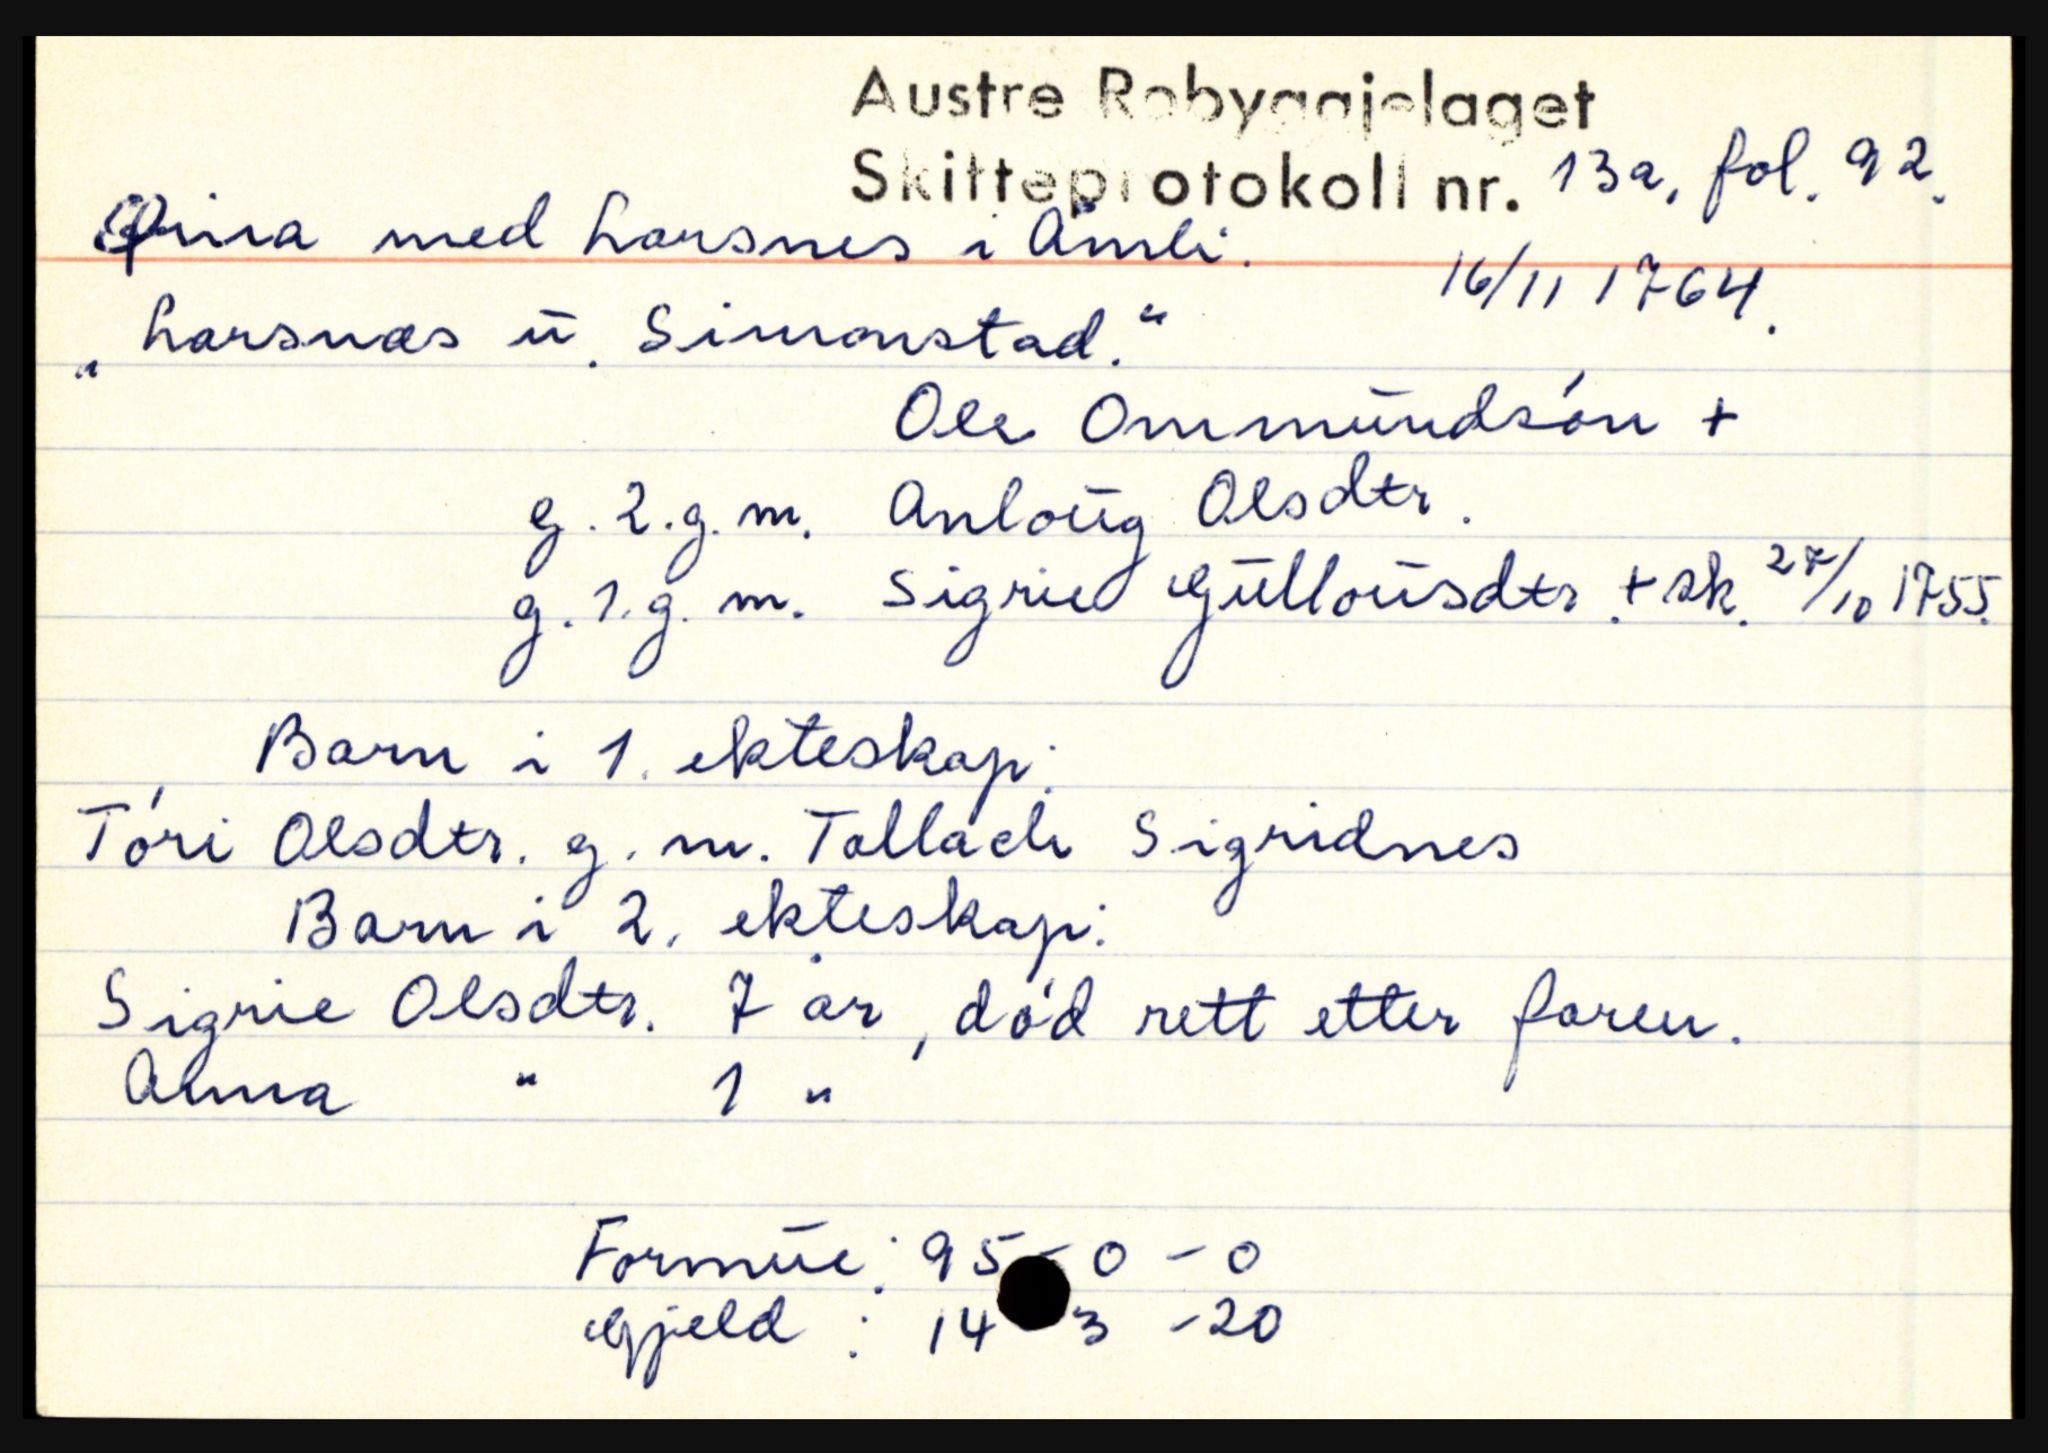 Austre Robyggjelaget
Skifteprotokoll nr. 13a, fol. 92.
med Larsnes i Åmli.
16/11 1764.
"Larsnæs u. Simonstad."
Ole Ommundsón +
g. 2.g. m. Anloug Olsdtr.
g. 1.g. m. Sigrie Gullousdtr. + sk. 27/10 1755.
Barn i 1. ekteskap:
Tóri Olsdtr. g. m. Tallach Sigridnes
Barn i 2. ekteskap:
Sigrie Olsdtr. 7 år, død rett etter faren.
Anna " 1 "
Formue: 95 - 0 - 0
Gjeld : 14 3 - 20